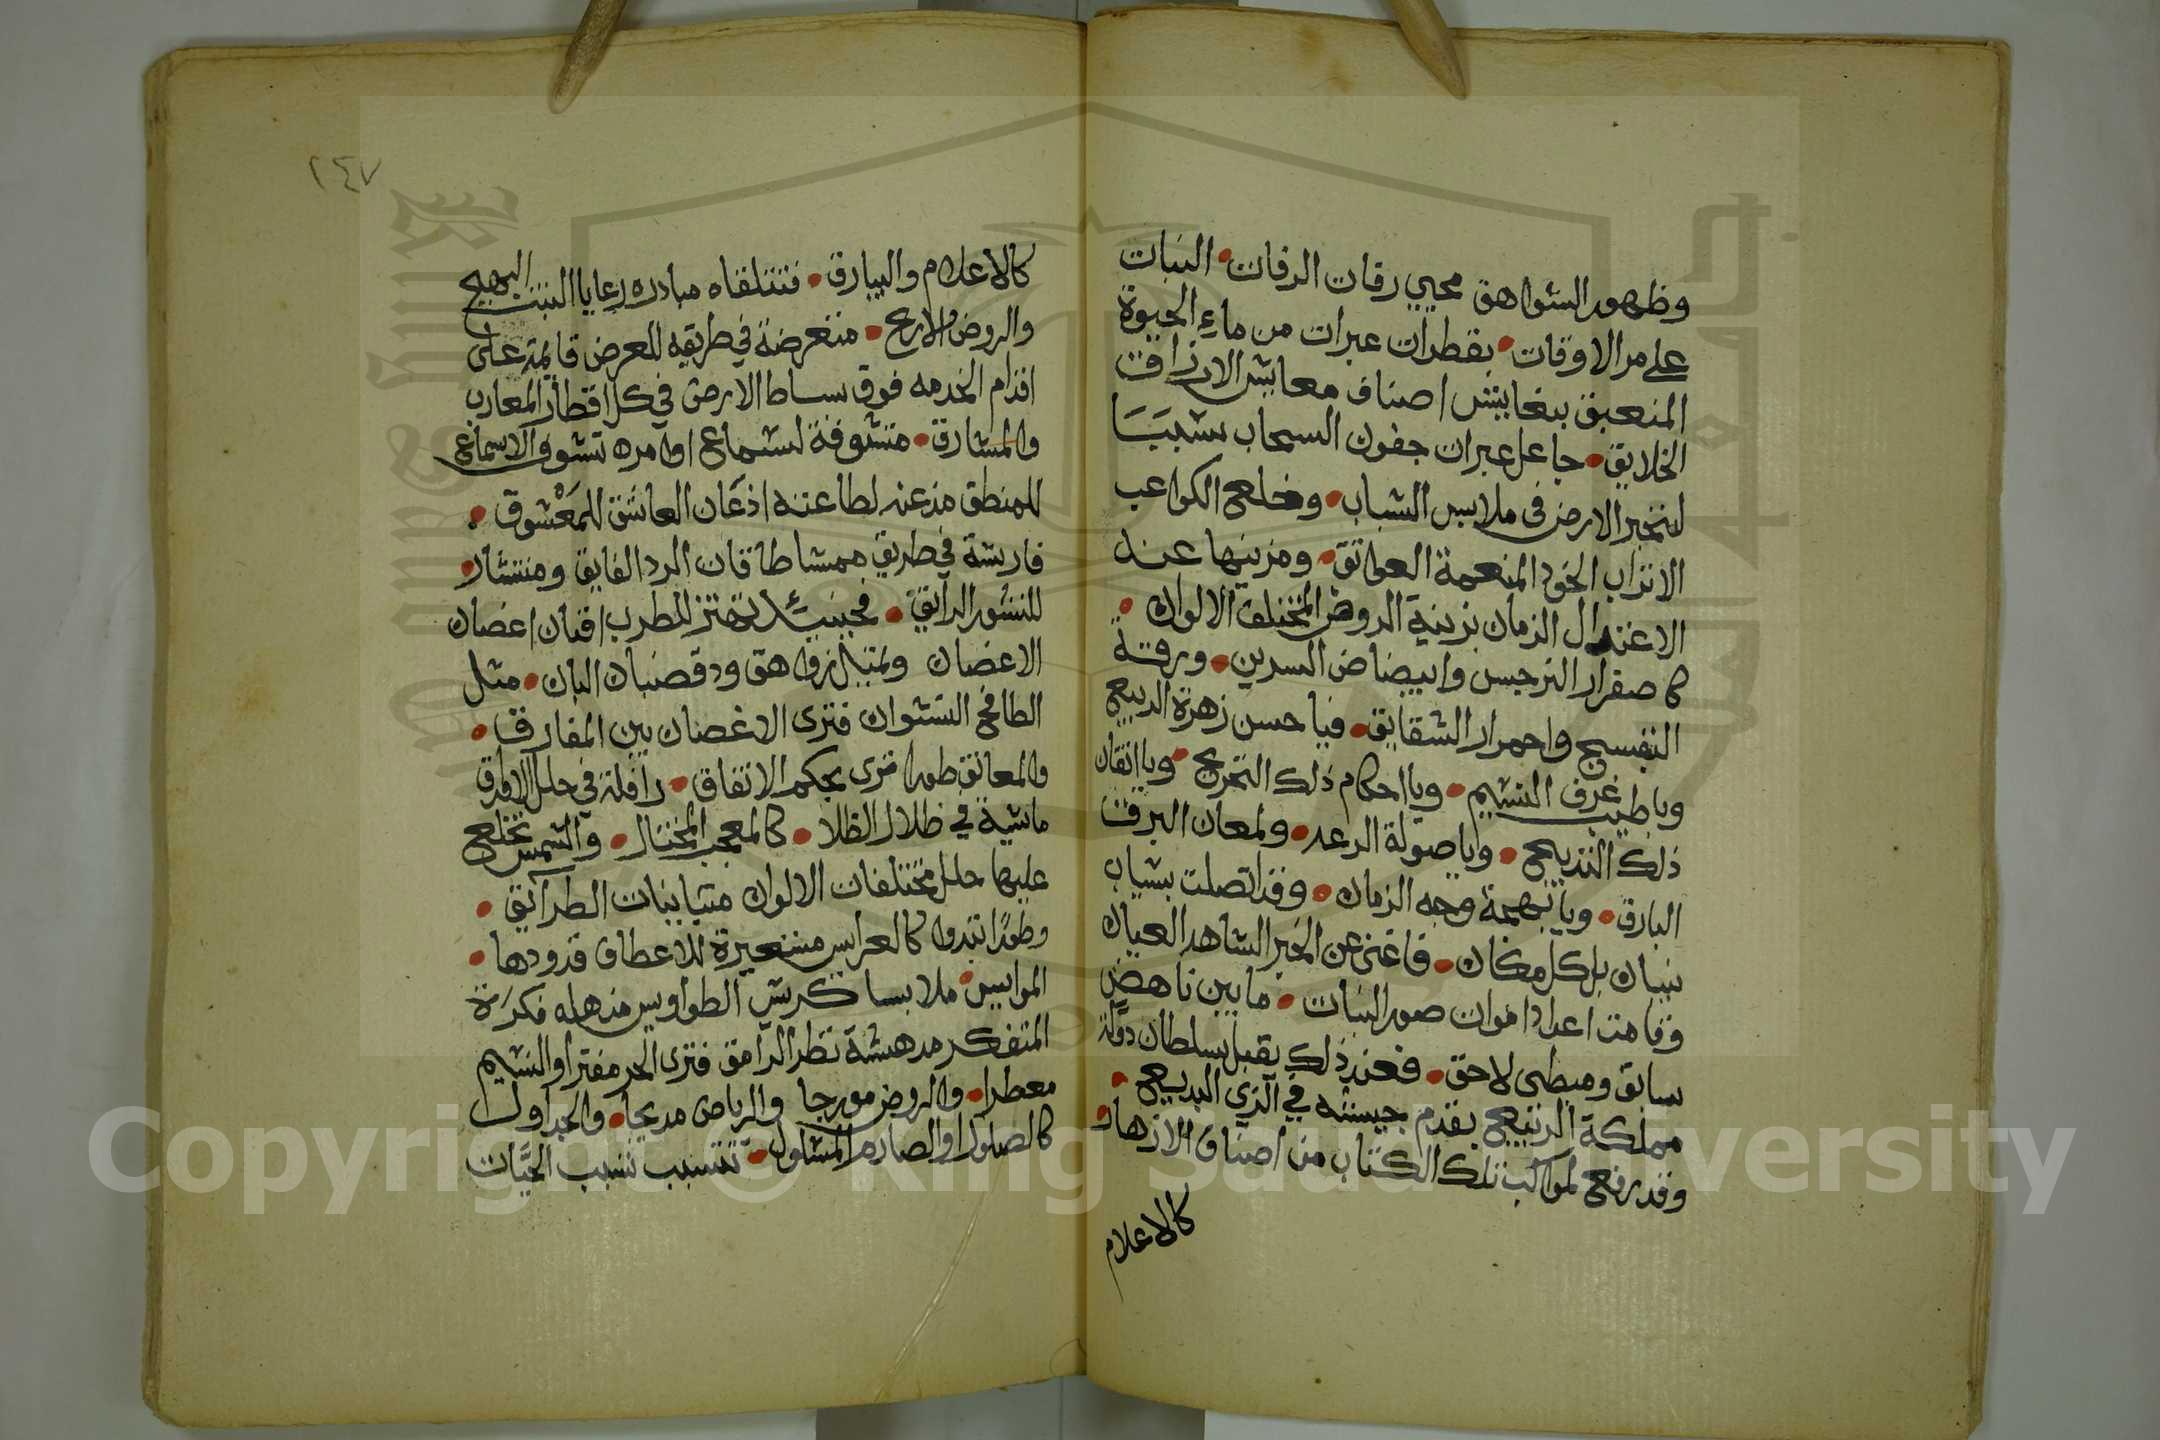 وظهور الشواهق محيي رقات الرفات • النبات
على مر الاوقات • بقطرات عبرات من ماء الحيوة
المنعبق ببغابيش اصناف معايش الارزاق
الخلايق • جاعل عبرات جفون السحاب سَبَبًا
لتبختر الارض في ملابس الشباب • وخلع الكواعب
الاتراب الخود المنعمة العواتق • ومزينها عند
الاعتدال الزمان بزينة الروض المختلفة الالوان •
كاصفرار النرجس وابيضاض النسرين • وزرقة
البنفسج واحمرار الشقايق • فيا حسن زهرة الربيع
ويا طيب عرف النسيم • ويا احكام ذلك التخريج • ويا اتقان
ذلك التدبيج • ويا صولة الرعد • ولمعان البرق
البارق • ويا بهجة وجه الزمان • وقد اتصلت بشباب
نيسان بكل مكان • فاغنى عن الخبر الشاهد العيان
وقامت اعداد اموات صور النبات • ما بين ناهض
سابق ومبطي لاحق • فعند ذلك يقبل سلطان دولة
مملكة الربيع بقدم جيشه في الزي البديع •
وقد رفع لمواكب تلك الكتاب من اصناف الازهار
كالاعلام
٢٤٧
كالاعلام والبيارق • فتتلقاه مبادره رعايا النبت البهيج
والروض الاريج • متعرضة في طريقه للعرض قايمة على
اقدام الخدمه فوق بساط الارض في كل اقطار المغارب
والمشارق • متشوفة لسماع اوامره تشوف الاسماع
للمنطق مذعنه لطاعته اذعان العاشق للمعشوق •
فارشة في طريق ممشاه طاقات الورد الفايق ومنتثار
المنثور الرايق • فحينئذ تهتز للطرب افنان اغصان
الاغضان وتميل زواهق ودقضبان البان • مثل
الطافح النشوان فترى الاغصان بين المفارق •
والمعانق طورا تترى بحكم الاتفاق • رافلة في حلل الاوراق
ماشية في ظلال الظلا • كالمعجب المختال • والشمس تخلع
عليها حلل مختلفات الالوان متباينات الطرآئق •
وطورًا تبدوا كالعرايس مستعيرة للاعطاف قدودها •
الموايس • ملابسا كريش الطواويس مذهله فكرَة
المتفكر مدهشة نظر الرامق فترى الحر مفترا والنسيم
معطرا • والروض مورجا والرياض مدبجا • والجداول
كالصلول او الصارم المسلول • تنسبب نسبب الحيَّات
Copyright © King Saud University